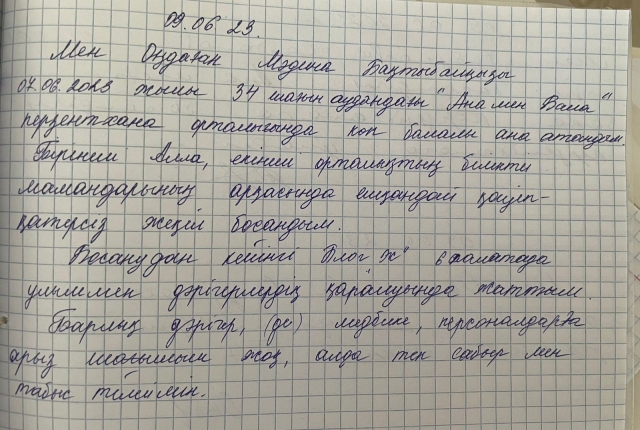 09.06 23.
Мен Оңдаған Мәдина Бақтыбайқызы
07.06.2023 жылы 34 шағын аудандағы "Ана мен Бала"
перзентхана орталығында көп балалы ана атандым.
Бірінші Алла, екінші орталықтың білікті
мамандарының арқасында ешқандай қауіп-
қатерсіз жеңіл босандым.
Босанудан кейінгі Блог "Ж" 6 палатада
ұлыммен дәрігерлердің қаралуында жаттым.
Барлық дәрігер, (дә) медбике, персоналдарға
арыз шағымым жоқ, алда тек сабыр мен
табыс тілеймін.